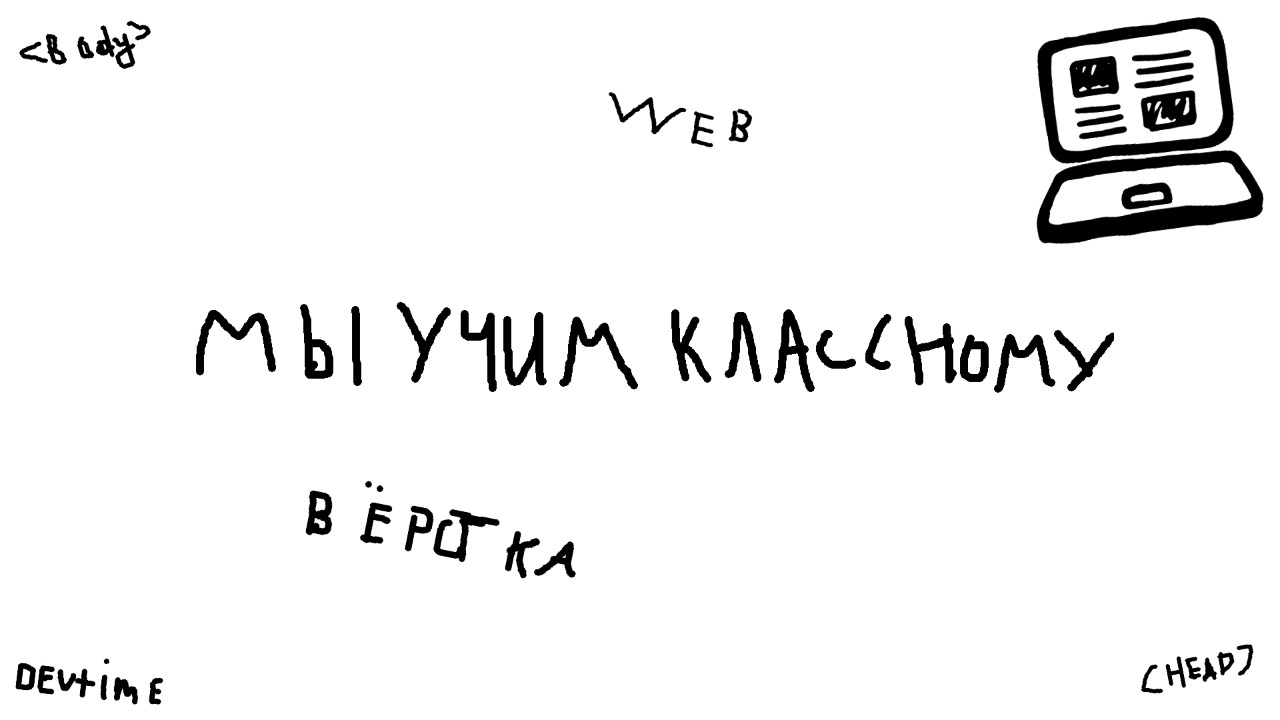 <Body>
WEB
МЫ УЧИМ КЛАССНОМУ
ВЁРСТКА
DEVtimE
[HEAD]